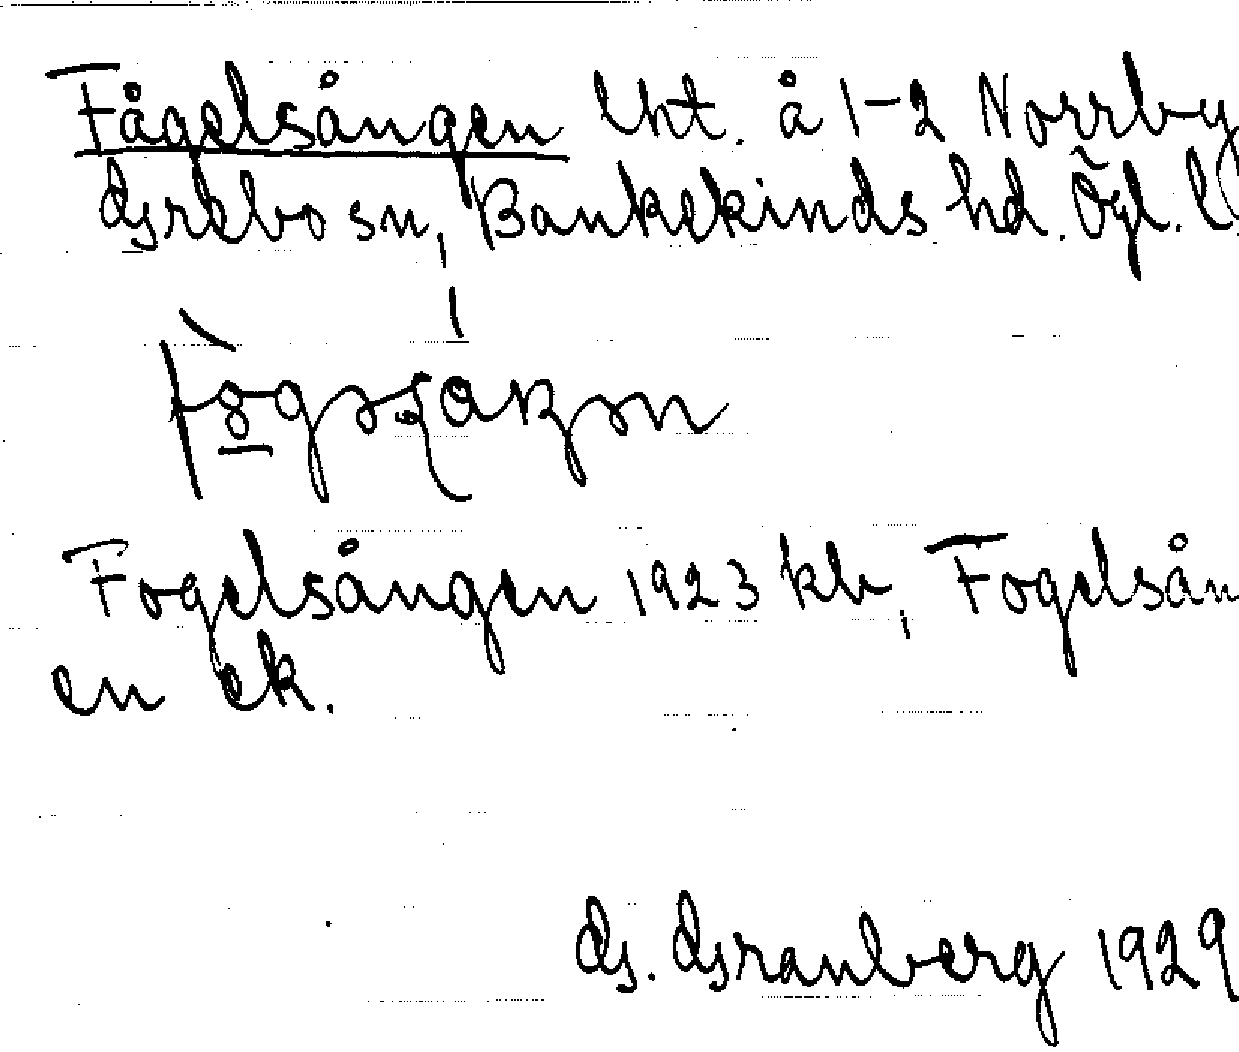 Fågelsången lht. å 1-2 Norrby
Grebo sn, Bankekinds hd. Ögl. l.
Fogelsången 1923 kb, Fogelsån
en ek.
G. Granberg 1929